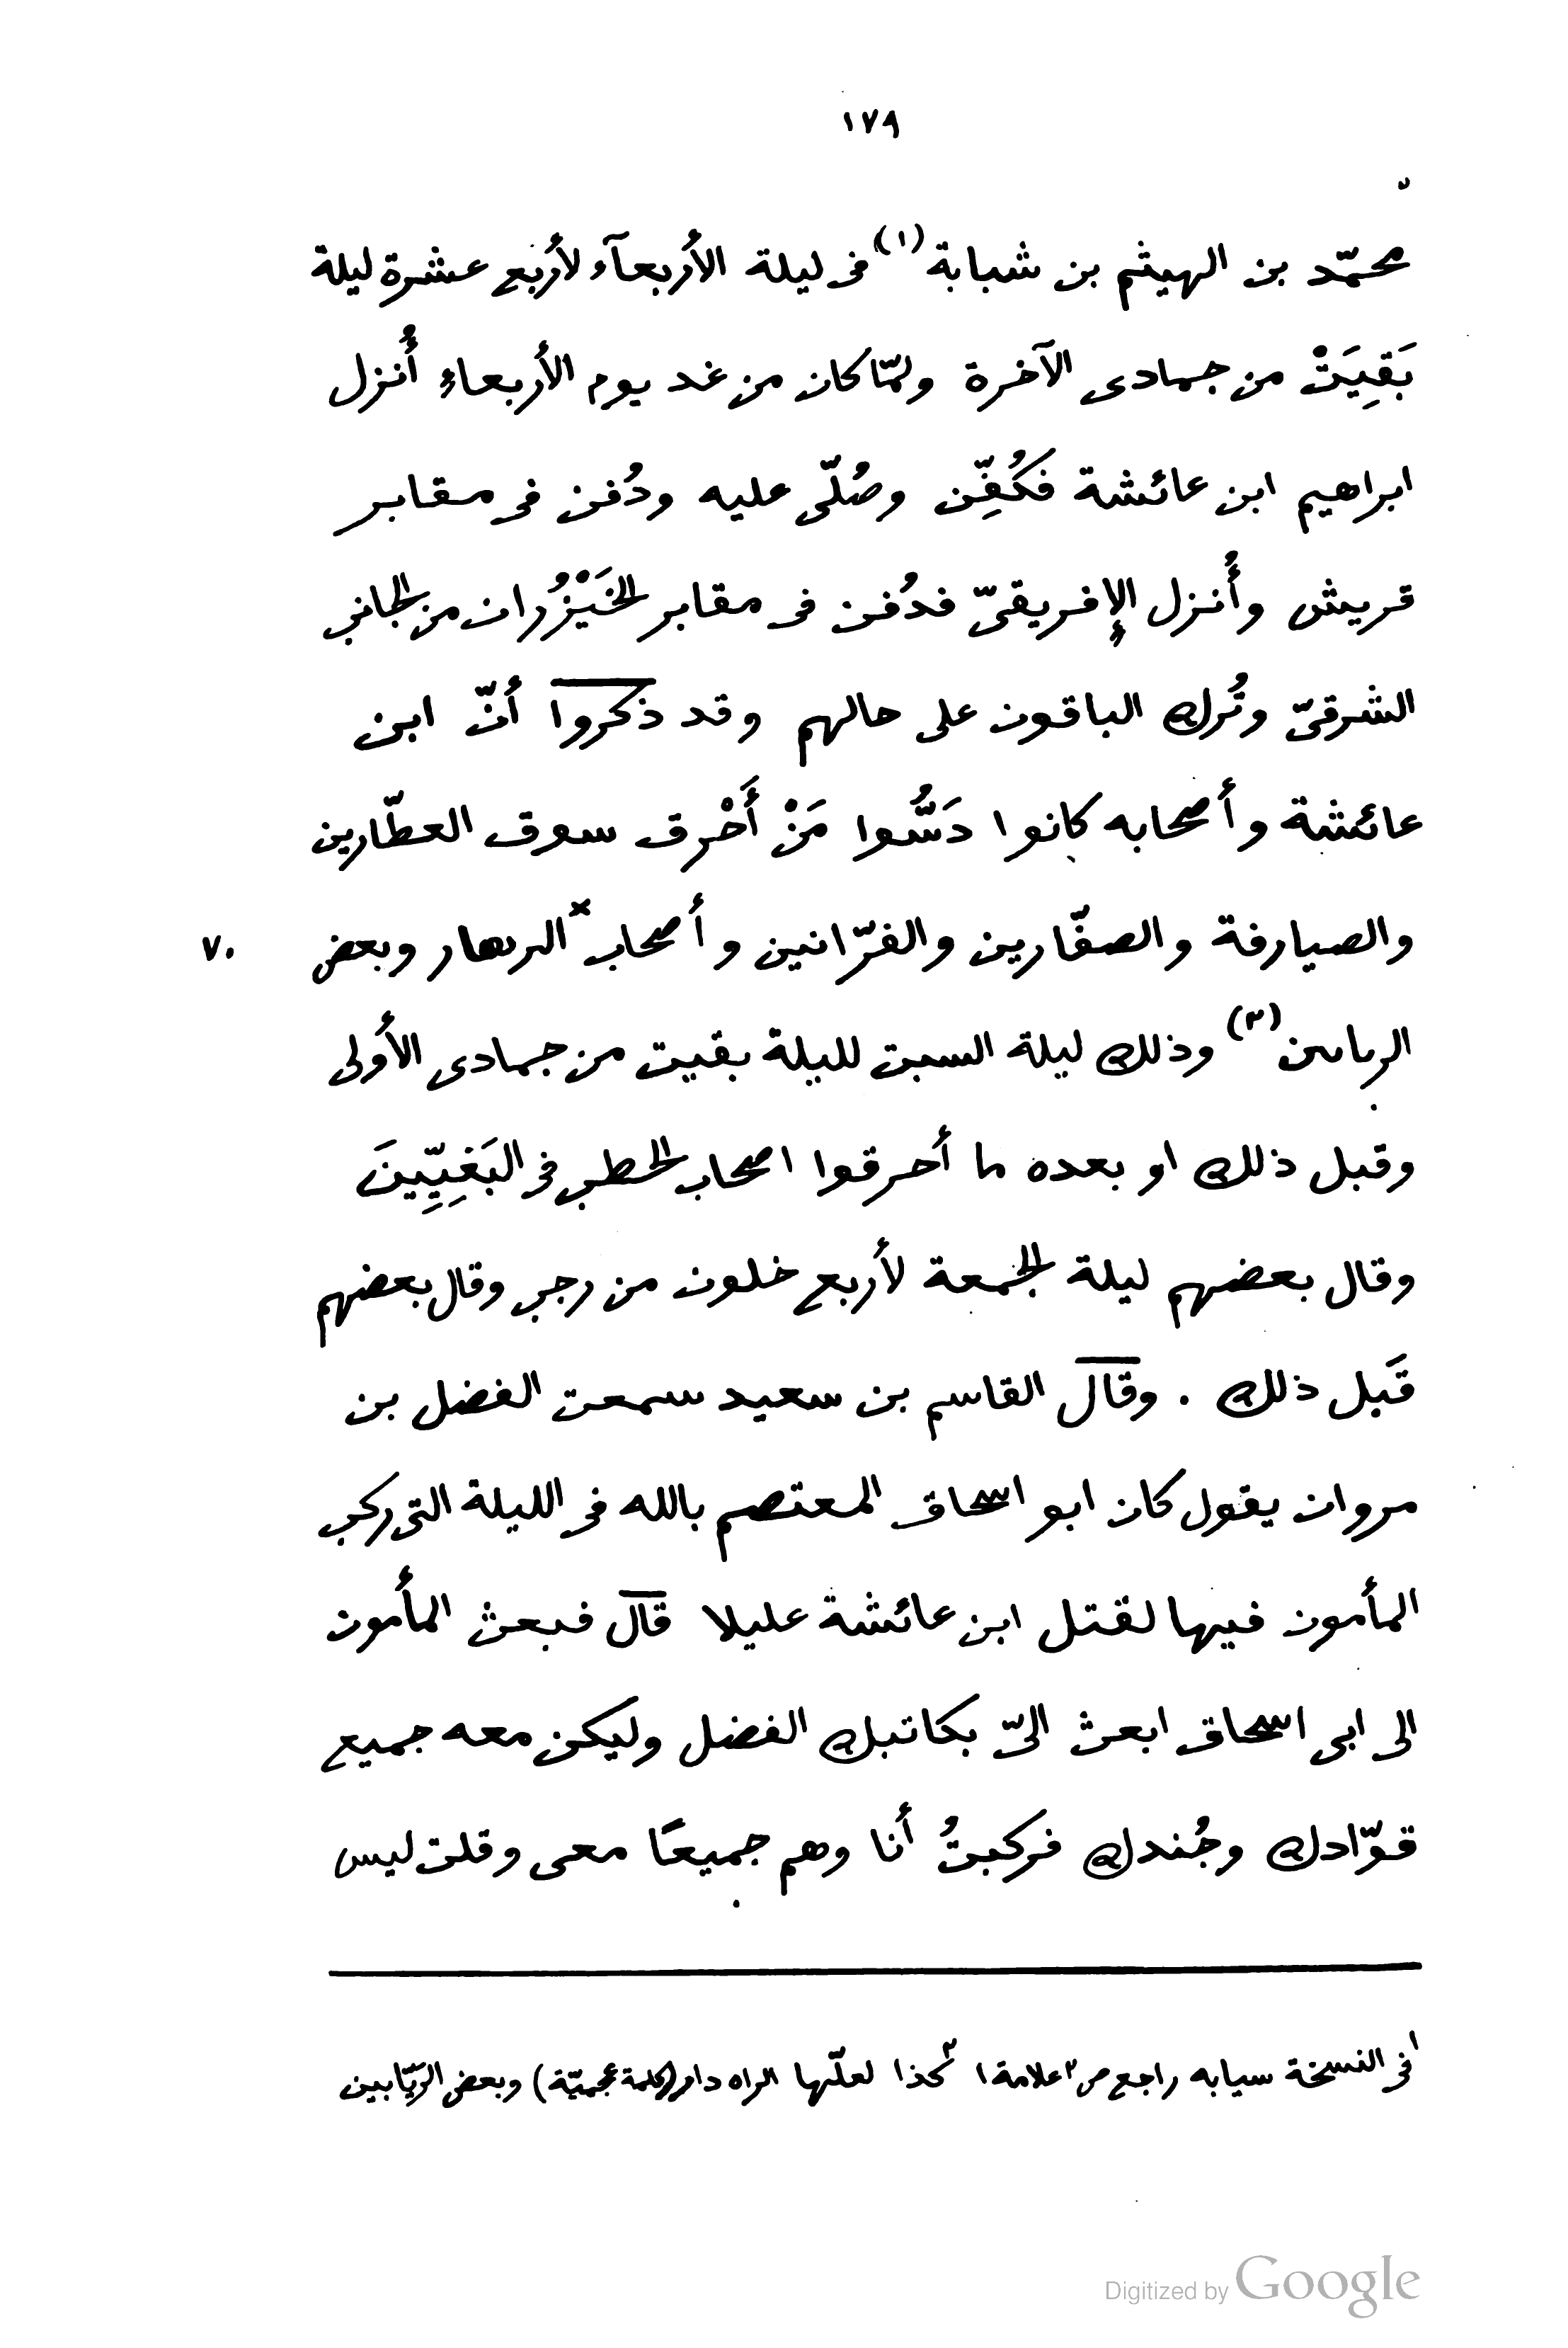 ١٧٩
محمّد بن الهيثم بن شبابة (١) فى ليلة الأربعآء لأربع عشرة ليلة
بَقِيَتْ من جمادى الآخرة ولمّا كان من غد يوم الأربعاء أُنزل
ابراهيم ابن عائشة فكُفِّن وصُلّى عليه ودُفن فى مقابر
قريش وأُنزل الإفريقىّ فدُفن فى مقابر الخَيْزُران من الجانب
الشرقىّ وتُرك الباقون على حالهم وقد ذكروا أنّ ابن
عائشة وأصحابه كانوا دَسُّوا مَنْ أَحْرق سوق العطّارين
والصيارفة والصفّارين والفرّانين وأصحاب الرهدار وبعض ٧٠
(٣) وذلك ليلة السبت لليلة بقيت من جمادى الأولى
وقبل ذلك او بعده ما أحرقوا اصحاب الحطب فى البَغِيِّينَ
وقال بعضهم ليلة الجمعة لأربع خلون من رجب وقال بعضهم
قَبل ذلك . وقال القاسم بن سعيد سمعت الفضل بن
مروان يقول كان ابو اسحاق المعتصم بالله فى الليلة التى ركب
المأمون فيها لقتل ابن عائشة عليلا قال فبعث المأمون
الى ابى اسحاق ابعث الىّ بكاتبك الفضل وليكن معه جميع
قوّادك وجُندك فركبتُ أنا وهم جميعًا معى وقلت ليس
١ فى النسخة سيابه راجع ص ٢ علامة ١ ٣ كذا لعلّها الراه دار (كلمة عجميّة) وبعض الربّابين
Digitized by Google